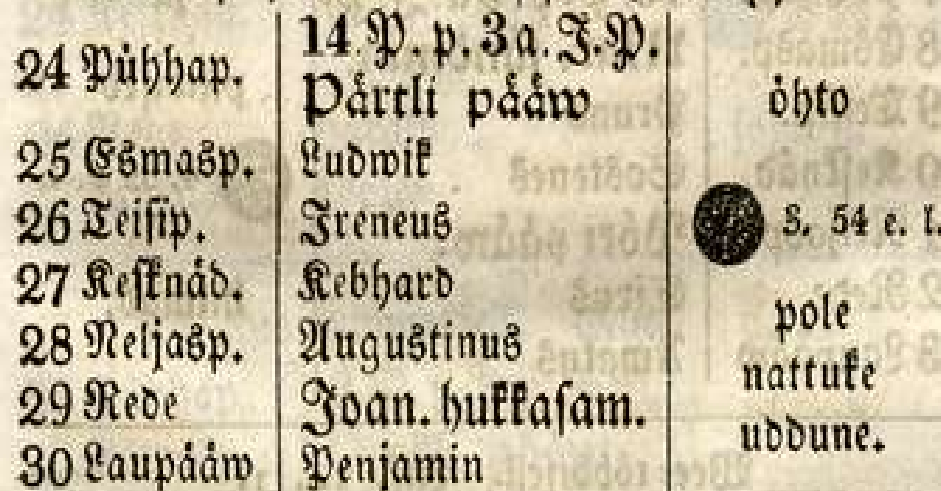 24 Pühhap.
14. P. p. 3a. J. P.
Pärtli pääw
öhto
25 Esmasp.
Ludwik
26 Teisip.
Ireneus
3. 54 e. l.
27 Keſknäd.
Kebhard
28 Neljasp.
Augustinus
pole
29 Rede
Joan. hukkaſam.
nattuke
30 Laupääw
Penjamin
uddune.